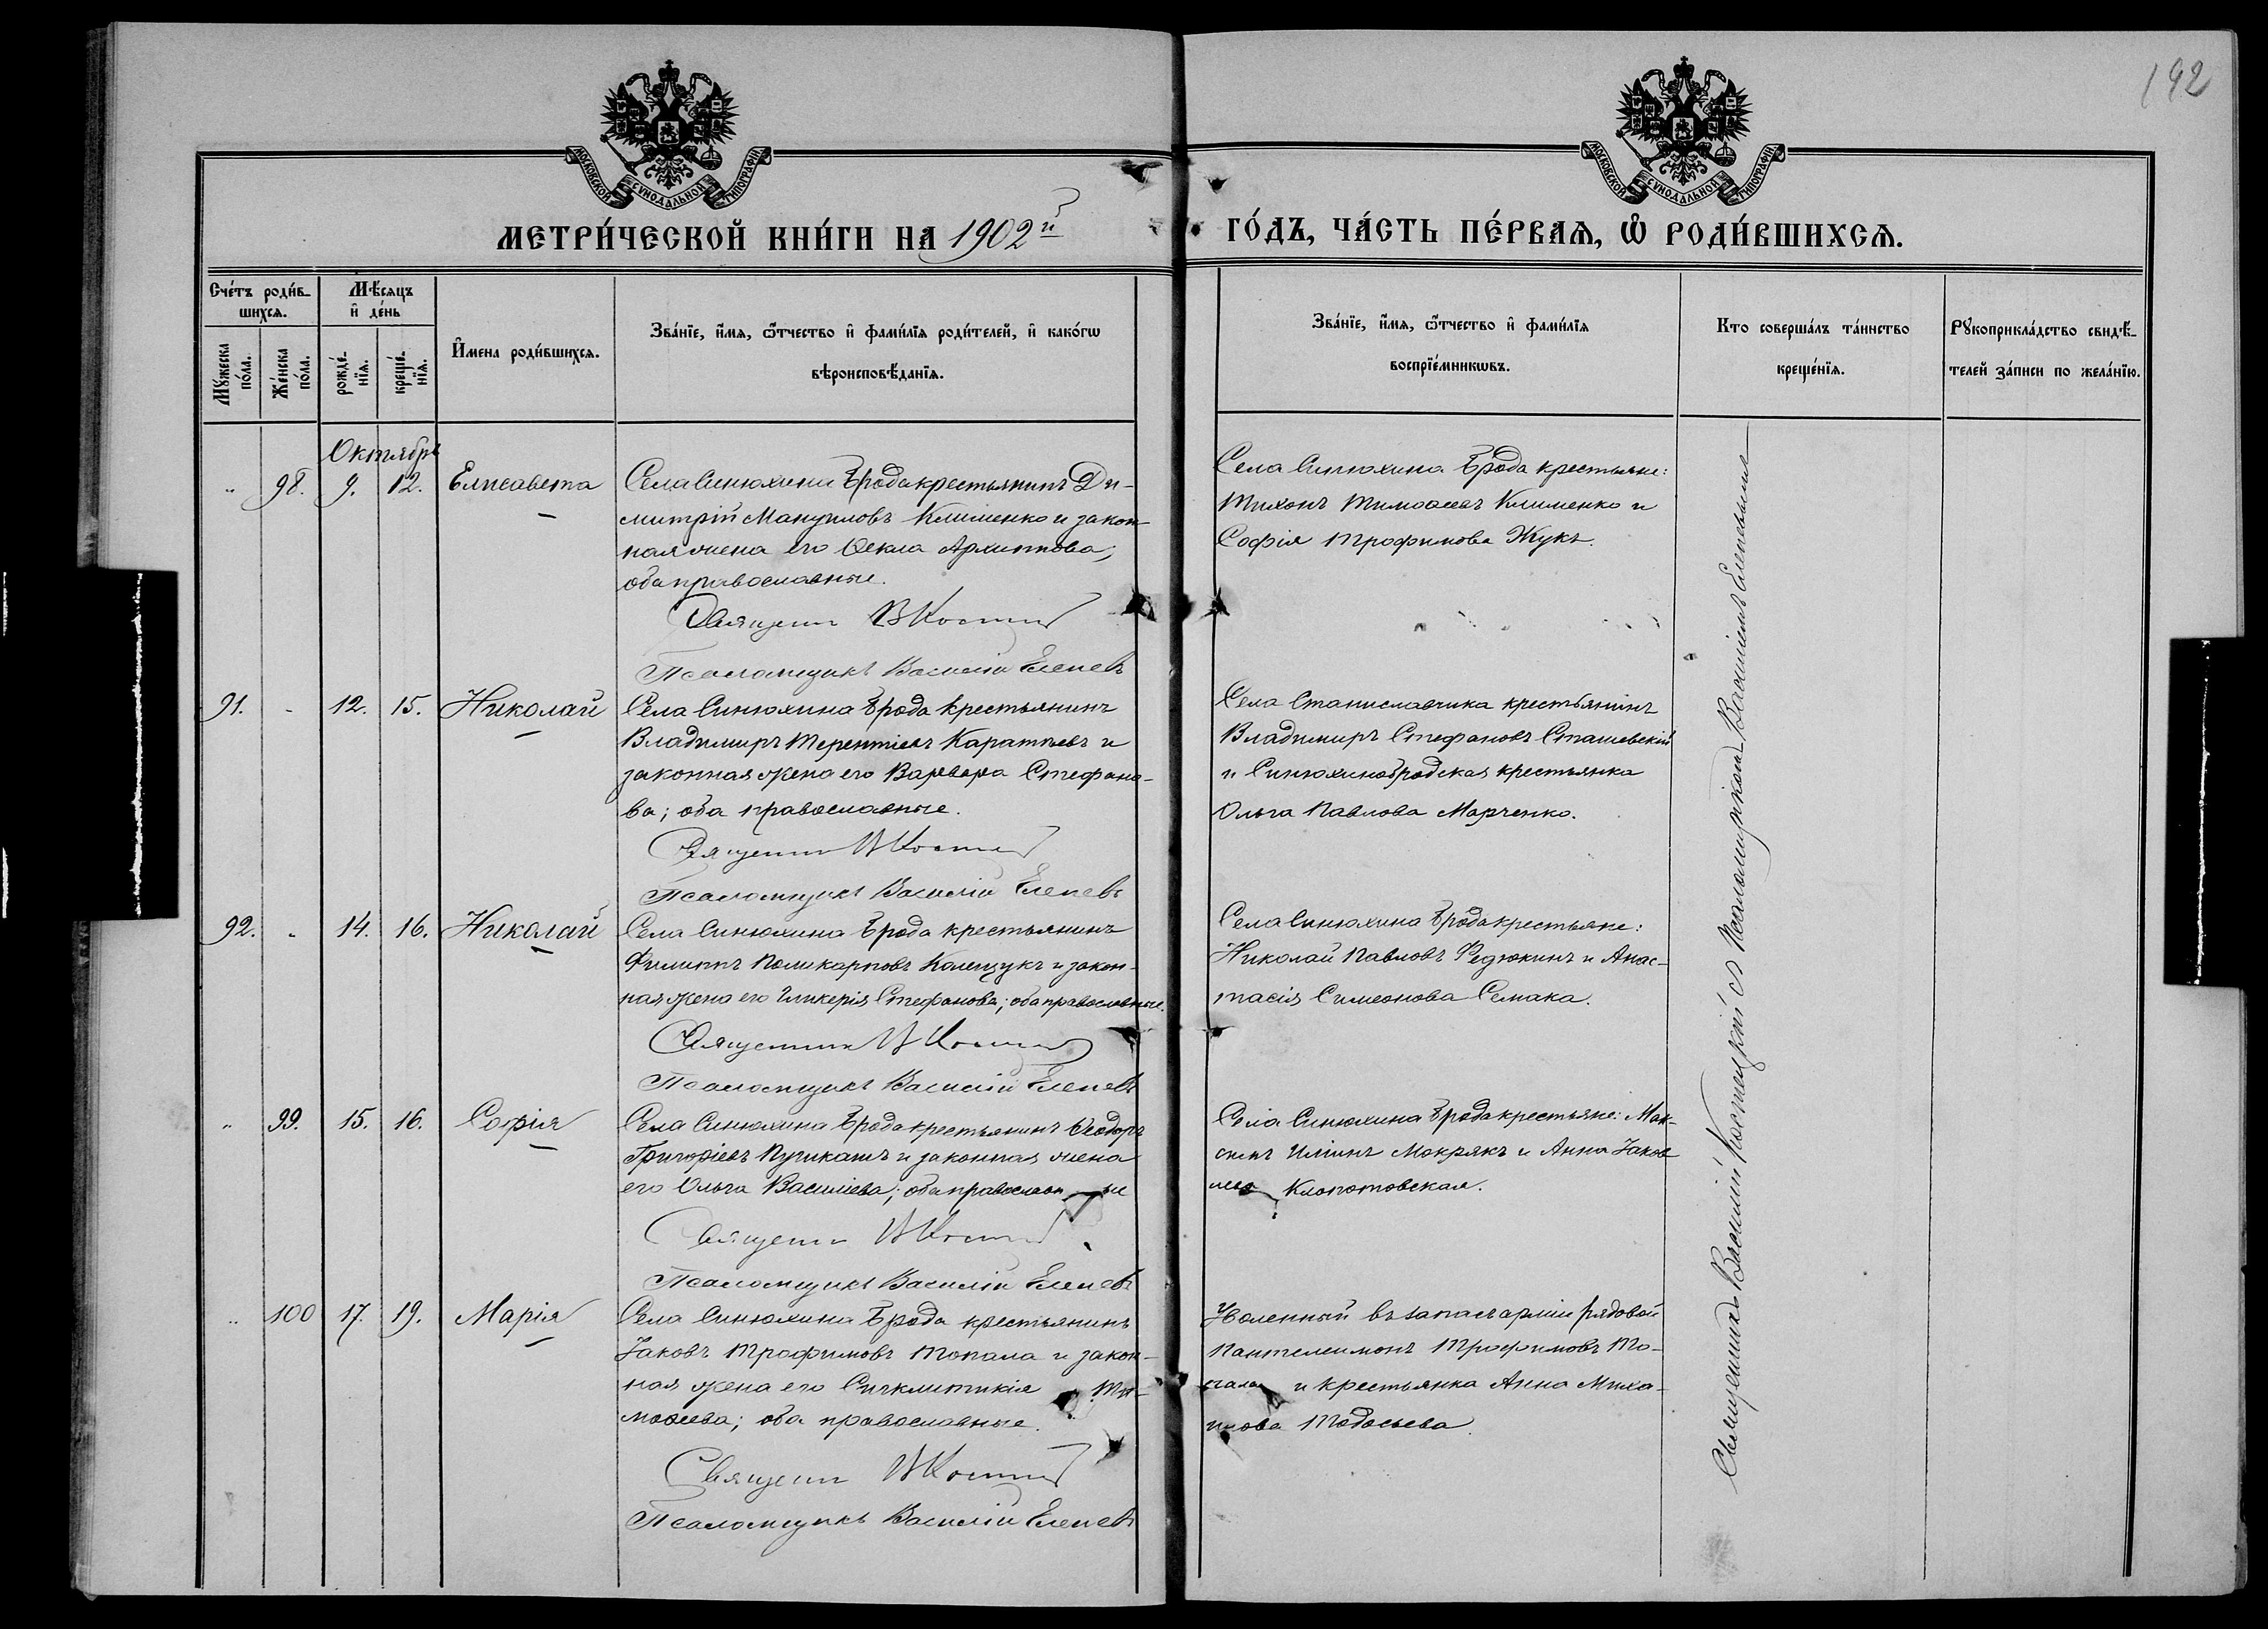 192
МОСКОВСКОЙ СѴНОДАЛЬНОЙ ТИПОГРАФІИ
МОСКОВСКОЙ СѴНОДАЛЬНОЙ ТИПОГРАФІИ
МЕТРИ́ЧЕСКОЙ КНИ́ГИ НА 1902й ГО́ДЪ, ЧА́СТЬ ПЕ́РВАЯ, Ѽ РОДИ́ВШИХСЯ.
Сче́тъ роди́в-
шихся.
Мꙋ́жеска по́ла.
Же́нска по́ла.
Мѣ́сяцъ и де́нь
рожде́-нїя.
креще́-нїя.
И҆мена роди́вшихся.
Зва́нїе, и҆́мя, ѻ҆́тчество и҆ фами́лїя роди́телей, и҆ како́гѡ
вѣроисповѣ́данїя.
Зва́нїе, и҆́мя, ѻ҆́тчество и҆ фами́лїя
воспрїе́мникѡвъ.
Кто соверша́лъ та́инство
креще́нїя.
Рꙋкоприкла́дство свидѣ́-
телей за́писи по жела́нїю.
Октябрь
" 98. 9. 12. Елисавета
Села Синюхина Брода крестьянинъ Ди-
митрій Мануиловъ Клименко и закон-
ная жена его Ѳекла Архиппова;
оба православные.
Священ В Кост
Псаломщикъ Василій Еленевъ
Села Синюхина Брода крестьяне:
Тихонъ Тимоѳеевъ Клименко и
Софія Трофимова Жукъ.
91. - 12. 15. Николай
Села Синюхина Брода крестьянинъ
Владимиръ Терентіевъ Каратѣевъ и
законная жена его Варвара Стефано-
ва; оба православные.
Священни В Кост
Псаломщикъ Василій Еленевъ
Села Станиславчика крестьянинъ
Владимиръ Стефановъ Сташевскій
и Синюхинобродская крестьянка
Ольга Павлова Марченко.
92. " 14. 16. Николай
Села Синюхина Брода крестьянинъ
Филиппъ Поликарповъ Колещукъ и закон-
ная жена его Гликерія Стефанова; оба православные.
Священник В Кост
Псаломщикъ Василій Еленевъ
Села Синюхина Брода крестьяне:
Николай Павловъ Федюкинъ и Анас-
тасія Симеонова Семака.
" 99. 15. 16. Софія
Села Синюхина Брода крестьянинъ Ѳеодоръ
Григоріевъ Пучикашъ и законная жена
его Ольга Василіева; оба православные
Священ В Кост
Псаломщикъ Василій Еленевъ
Села Синюхина Брода крестьяне: Мак-
симъ Иліинъ Мокрякъ и Анна Іаков
лева Клопотовская.
" 100 17. 19. Марія
Села Синюхина Брода крестьянинъ
Іаковъ Трофимовъ Топала и закон-
ная жена его Синклитикія Ти-
моѳеева; оба православные.
Священ В Кост
Псаломщикъ Василій Еленевъ
Уволенный въ запасъ арміи рядовой
Пантелеимонъ Трофимовъ То-
пала и крестьянка Анна Миха-
илова Тодосьева.
Священникъ Василій Костецкій съ Псаломщикомъ Василіемъ Еленевымъ